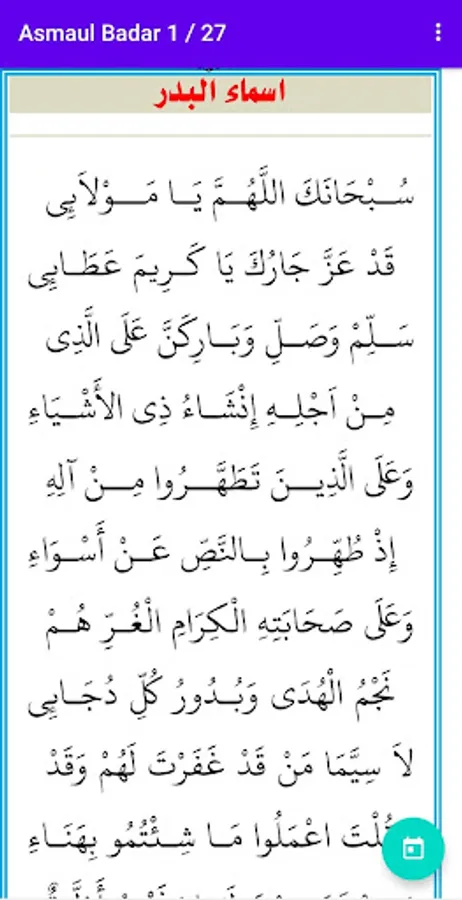 Asmaul Badar 1 / 27
اسماء البدر
سُبْحَانَكَ اللَّهُمَّ يَا مَوْلاَيِى
قَدْ عَزَّ جَارُكَ يَا كَرِيمَ عَطَايِى
سَلِّمْ وَصَلِّ وَبَارِكَنَّ عَلَى الَّذِى
مِنْ اَجْلِهِ إِنْشَاءُ ذِى الأَشْيَاءِ
وَعَلَى الَّذِينَ تَطَهَّرُوا مِنْ آلِهِ
إِذْ طُهِّرُوا بِالنَّصِّ عَنْ أَسْوَاءِ
وَعَلَى صَحَابَتِهِ الْكِرَامِ الْغُرِّ هُمْ
نَجْمُ الْهُدَى وَبُدُورُ كُلِّ دُجَايِى
لاَ سِيَّمَا مَنْ قَدْ غَفَرْتَ لَهُمْ وَقَدْ
اعْمَلُوا مَا شِئْتُمُو بِهَنَاءِ